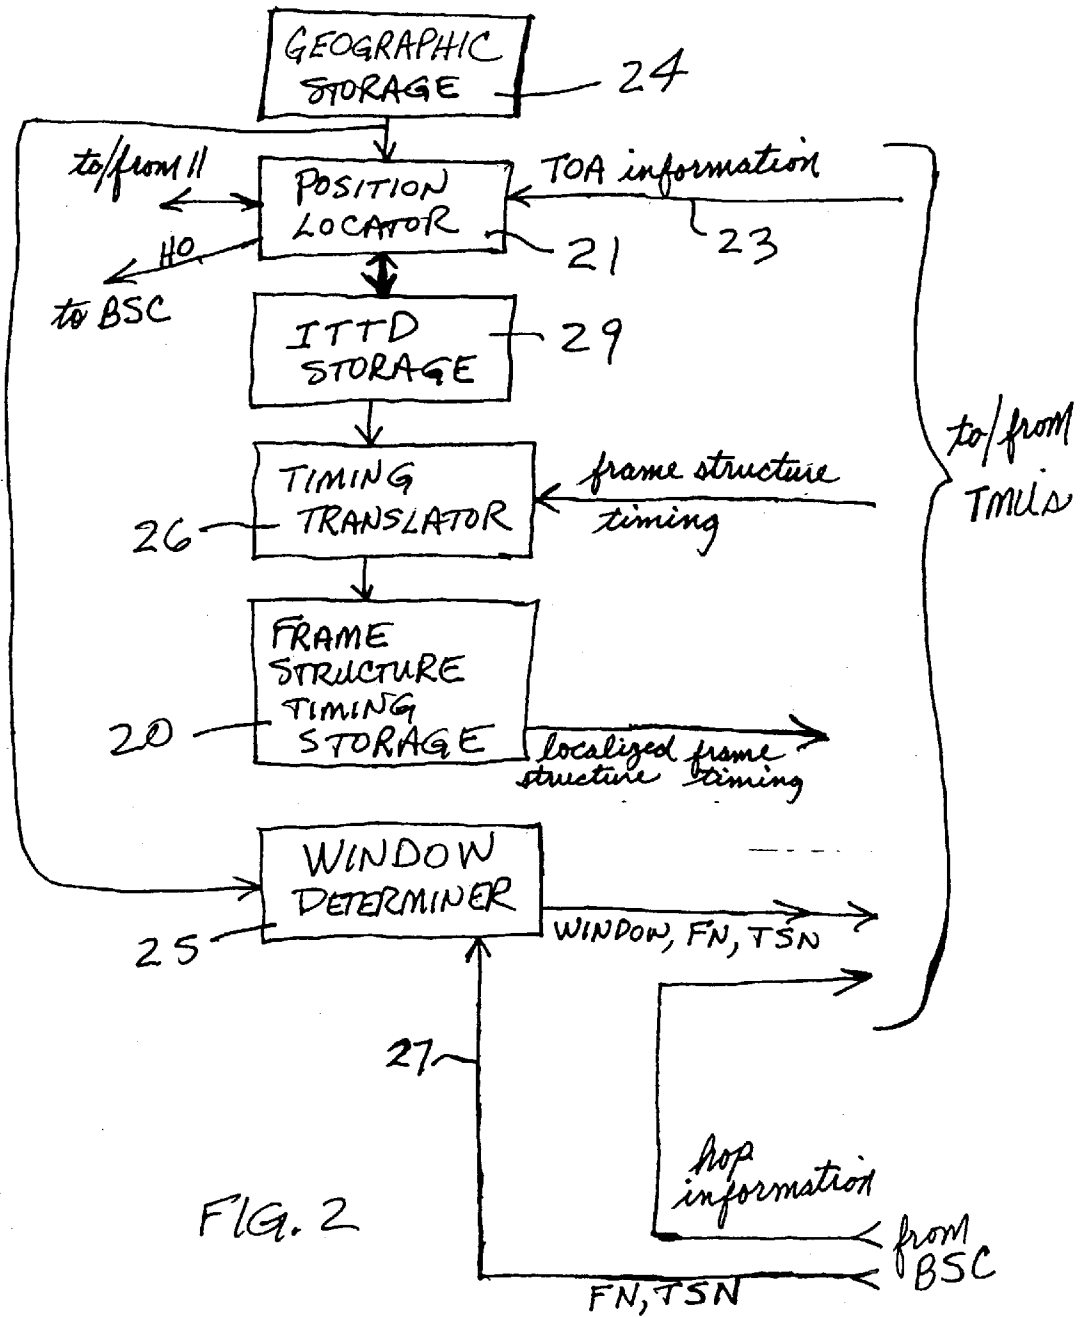 GEOGRAPHIC
STORAGE
24
to/from 11
POSITION
LOCATOR
TOA information
23
21
HO
to BSC
ITTD
STORAGE
29
TIMING
TRANSLATOR
26
frame structure
timing
to/from
TMUs
FRAME
STRUCTURE
TIMING
STORAGE
20
localized frame
structure timing
WINDOW
DETERMINER
25
WINDOW, FN, TSN
27
hop
information
FIG. 2
from
BSC
FN, TSN